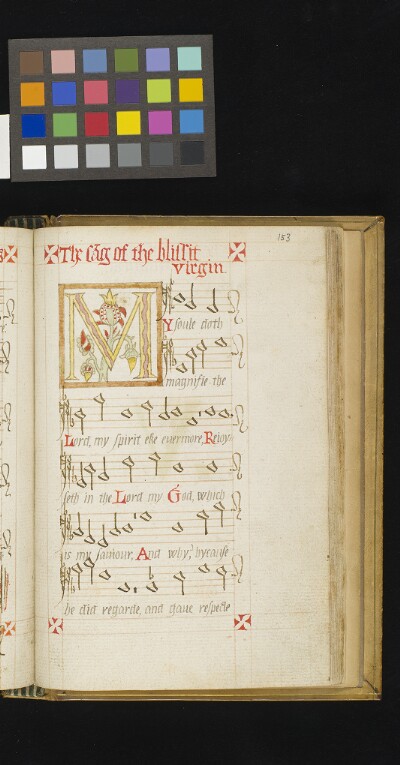 153
The sãg of the blissit
virgin
MY soule doth
magnifie the
Lord, my spirit eke evermore, Reioy-
seth in the Lord my God, which
is my saviour, And why, bycause
he did regarde, and gaue respecte